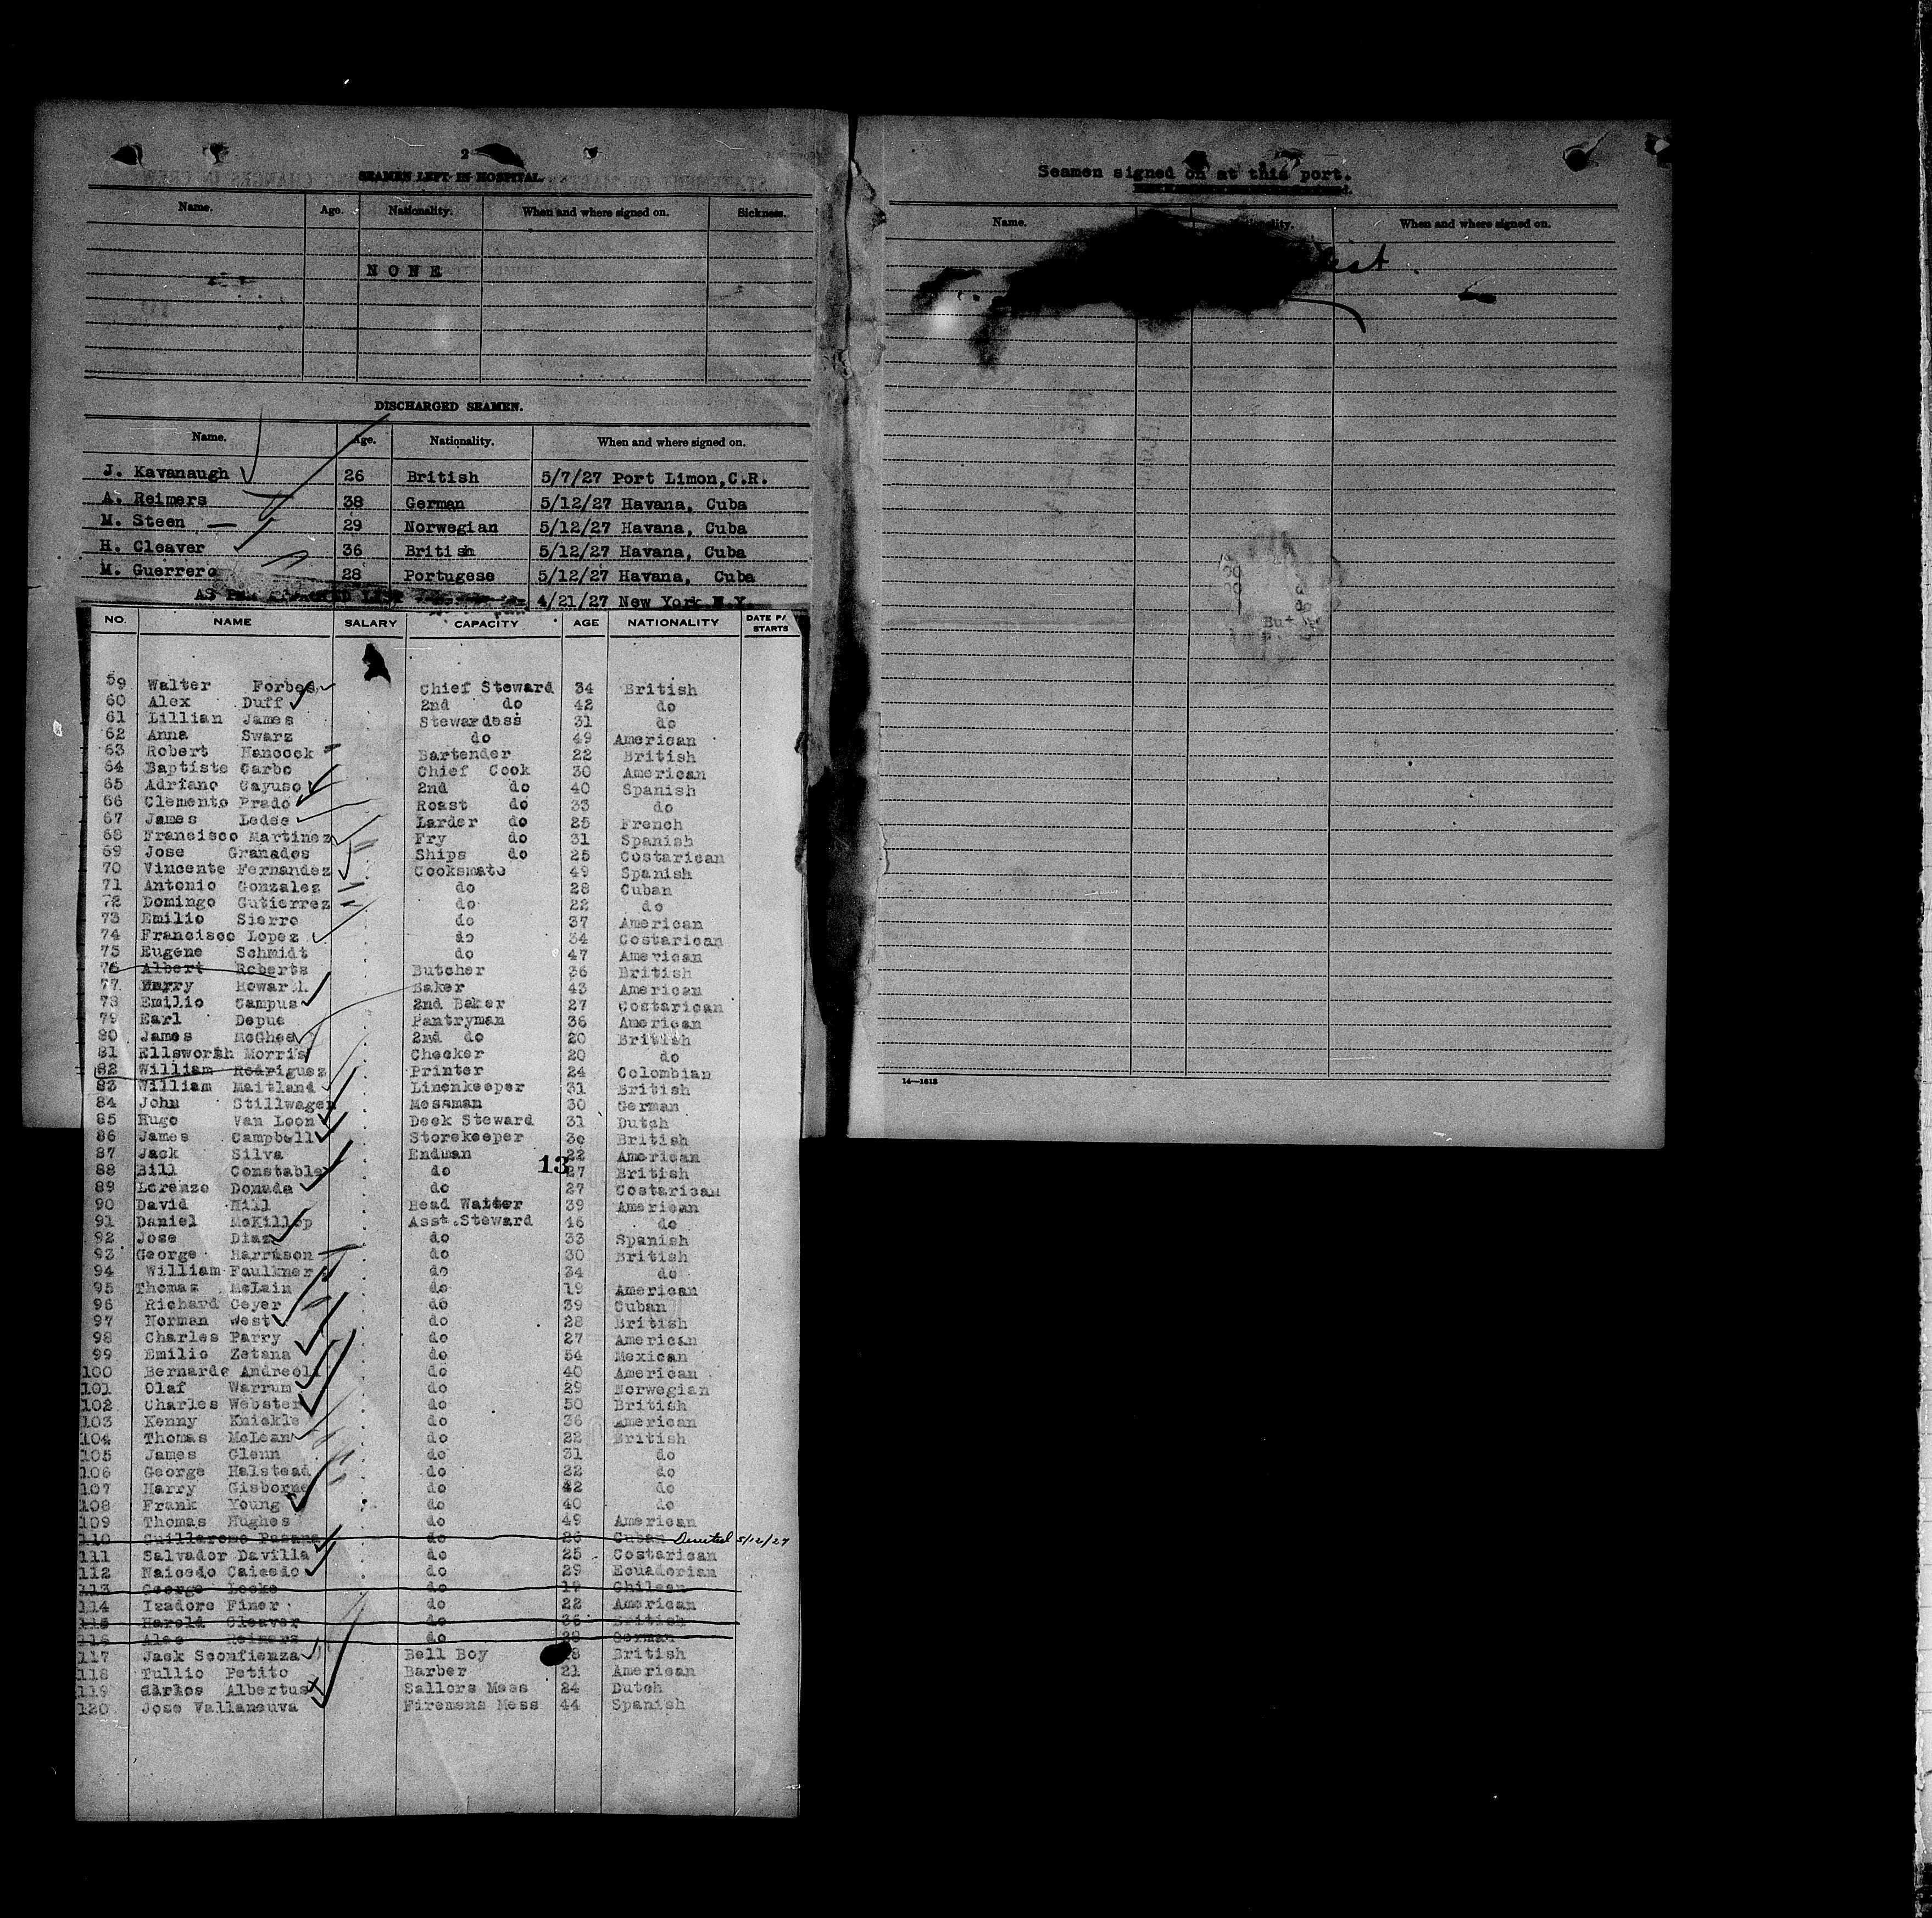 2
SEAMEN LEFT IN HOSPITAL.
Name. Age. Nationality. When and where signed on. Sickness.
NONE
DISCHARGED SEAMEN.
Name. Age. Nationality. When and where signed on.
J. Kavanaugh 26 British 5/7/27 Port Limon,C.R.
A. Reimers 38 German 5/12/27 Havana, Cuba
M. Steen 29 Norwegian 5/12/27 Havana, Cuba
H. Cleaver 36 British 5/12/27 Havana, Cuba
M. Guerrero 28 Portugese 5/12/27 Havana, Cuba
AS PER ATTACHED LIST 4/21/27 New York N.Y.
NO. NAME SALARY CAPACITY AGE NATIONALITY DATE PAY STARTS
59 Walter Forbes Chief Steward 34 British
60 Alex Duff 2nd do 42 do
61 Lillian James Stewardess 31 do
62 Anna Swarz do 49 American
63 Robert Hancock Bartender 22 British
64 Baptiste Carbo Chief Cook 30 American
65 Adriano Cayuso 2nd do 40 Spanish
66 Clemento Prado Roast do 33 do
67 James Ledee Larder do 25 French
68 Francisco Martinez Fry do 31 Spanish
69 Jose Granados Ships do 25 Costarican
70 Vincente Fernandez Cooksmate 49 Spanish
71 Antonio Gonzalez do 28 Cuban
72 Domingo Gutierrez do 22 do
73 Emilio Sierro do 37 American
74 Francisco Lopez do 34 Costarican
75 Eugene Schmidt do 47 American
76 Albert Roberts Butcher 36 British
77 Harry Howard Baker 43 American
78 Emilio Campus 2nd Baker 27 Costarican
79 Earl Depue Pantryman 36 American
80 James McGhee 2nd do 20 British
81 Ellsworth Morris Checker 20 do
82 William Rodriguez Printer 24 Colombian
83 William Maitland Linenkeeper 31 British
84 John Stillwagen Messman 30 German
85 Hugo Van Loon Deck Steward 31 Dutch
86 James Campbell Storekeeper 30 British
87 Jack Silva Endman 22 American
88 Bill Constable do 27 British
13
89 Lorenzo Donada do 27 Costarican
90 David Hill Head Waiter 39 American
91 Daniel McKillop Asst.Steward 46 do
92 Jose Diaz do 33 Spanish
93 George Harrison do 30 British
94 William Faulkner do 34 do
95 Thomas McLain do 19 American
96 Richard Geyer do 39 Cuban
97 Norman West do 28 British
98 Charles Parry do 27 American
99 Emilio Zetana do 54 Mexican
100 Bernardo Andreoli do 40 American
101 Olaf Warrum do 29 Norwegian
102 Charles Webster do 50 British
103 Kenny Knickle do 36 American
104 Thomas McLean do 22 British
105 James Glenn do 31 do
106 George Halstead do 22 do
107 Harry Gisborne do 42 do
108 Frank Young do 40 do
109 Thomas Hughes do 49 American
110 Guillermo Pazana do 26 Cuban 5/12/27
111 Salvador Davilla do 25 Costarican
112 Naicedo Caicedo do 29 Ecuadorian
113 George Locke do 19 Chilean
114 Izadore Finer do 22 American
115 Harold Cleaver do 36 British
116 Alec Reimers do 38 German
117 Jack Sconfienza Bell Boy 18 British
118 Tullio Petito Barber 21 American
119 Carlos Albertus Sailors Mess 24 Dutch
120 Jose Vallaneuva Firemens Mess 44 Spanish
Seamen signed on at this port.
Name. When and where signed on.
14—1613